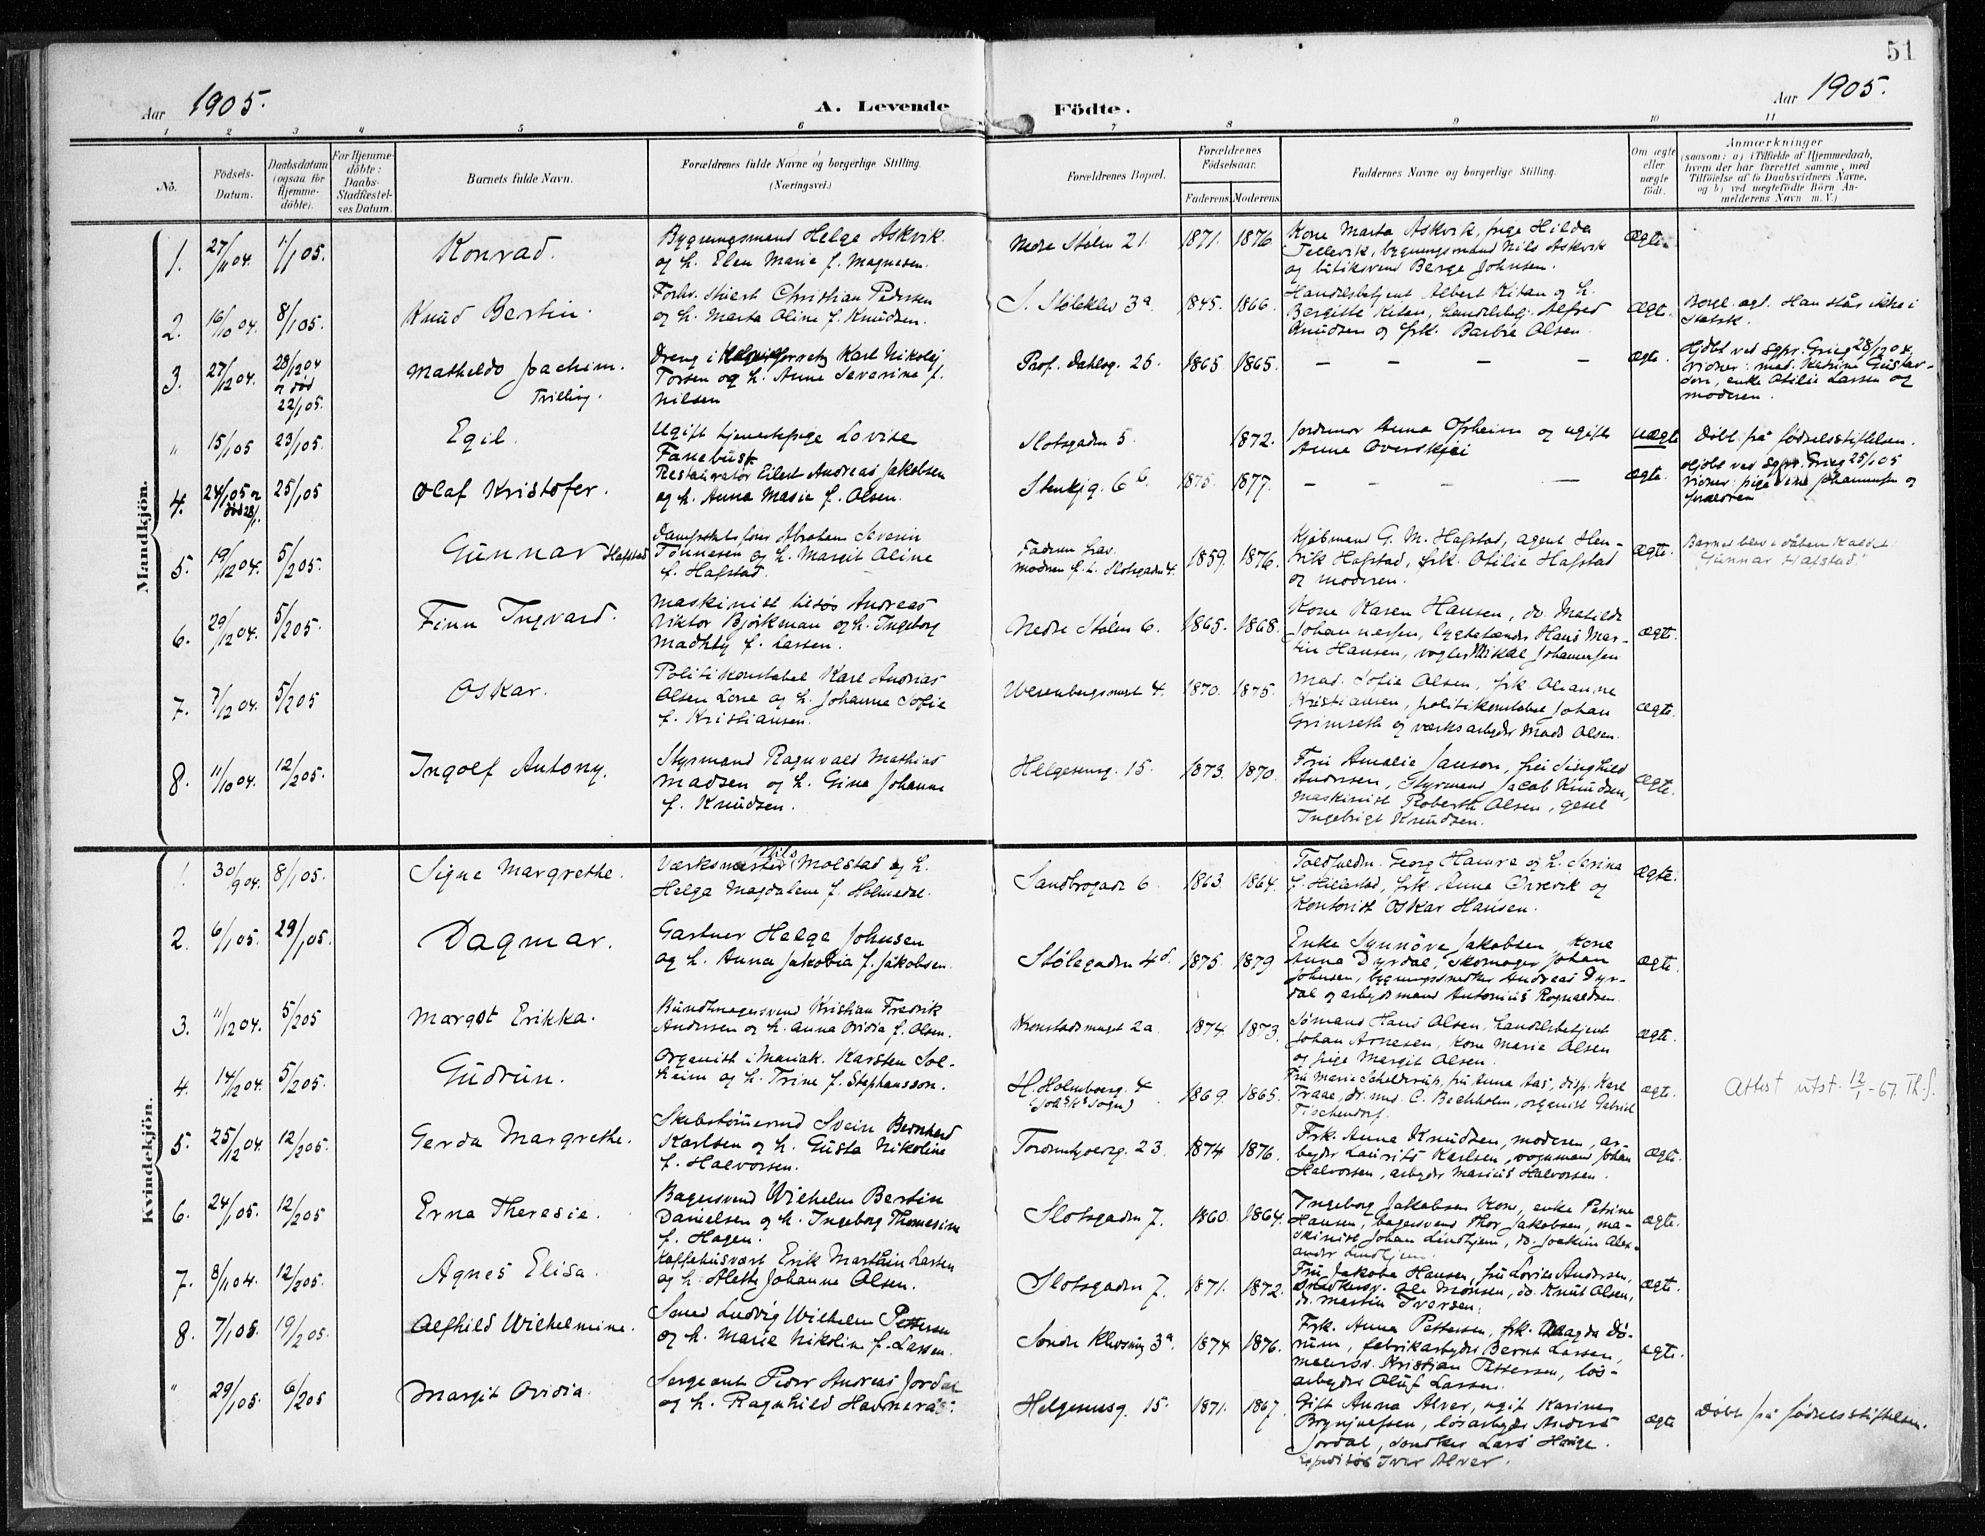 51
Aar 1905.
A. Levende Födte.
Aar 1905.
1 2 3 4 5 6 7 8 9 10 11
No.
Födsels-Datum.
Daabsdatum (ogsaa for Hjemme-döbte).
For Hjemme-döbte: Daabs-Stadfæstel-ses Datum.
Barnets fulde Navn.
Forældrenes fulde Navne og borgerlige Stilling.
(Næringsvei.)
Forældrenes Bopæl.
Forældrenes Födselsaar.
Faderens Moderens
Faddernes Navne og borgerlige Stilling.
Om ægte eller uægte födt.
Anmærkninger
(saasom: a) i Tilfælde af Hjemmedaab,
hvem der har forrettet samme, med
Tilföielse af to Daabsvidners Navne,
og b) ved uægtefödte Börn An-
melderens Navn m. V.)
Mandkjön.
1. 27/11 04. 1/1 05. Konrad.
Bygningsmand Helge Askvik
og h. Elen Marie f. Magnesen.
Nedre Stølen 21. 1871. 1876
Kone Marta Askvik, pige Hilda
Tellevik, bygningsmand Nils Askvik
og butiksvend Berge Johnsen.
Ægte.
2. 16/10 04. 8/1 05. Knud Bertin.
Christian Pedersen
og h. Marta Oline f. Knudsen.
S. Støleklev 3a 1845. 1866.
Handelsbetjent Albert Kitan og h.
Bergitte Kitan, handelsbetj. Alfred
Knudsen og frk. Barbra Olsen.
Ægte.
Han står ikke i
Statsk.
3. 27/12 04. 28/12 04 død 22/1 05.
Mathelds Joachim.
Tvilling.
Dreng i Karl Nikolej
Torsen og h. Anne Severine f.
Nilsen
Prof. Dahlsg. 25. 1865 1865.
– – – –
ægte.
Hjdbt ved Sgpr. Grieg 28/12 04.
Vidner: mad. Katrine Gustav-
sen, enke Otilie Larsen og
moderen.
" 15/1 05 23/1 05. Egil.
Ugift tjenestepige Lovise
Fanebust
Slotsgaden 5. 1872.
Jordmor Anna Opheim og ugift
Anne Overskjei
uægte
Døbt på fødselsstiftelsen.
4. 24/1 05 død 28/1. 25/1 05 Olaf Kristofer.
Restauratør Eilert Andreas Jakobsen
og h. Anna Marie f. Olsen.
Stenkjg. 6b. 1875. 1877.
– – – –
ægte.
Hjdbt ved Sgpr. Grieg 25/1 05
Vidner: pige Johannesen og
forældren
5. 19/12 04. 5/2 05. Gunnar Hafstad
Dampskibsfører Abraham Severin
Tønnesen og h. Margit Oline
f. Hafstad.
moderen f. h. Slotsgaden 4. 1859. 1876.
Kjøbmand G. M. Hafstad, agent Hen-
rik Hafstad, frk. Otilie Hafstad
og moderen.
ægte.
Barnet blev i dåben kaldet
Gunnar Hafstad.
6. 29/12 04. 5/2 05. Finn Ingvard.
Maskinist tilsøs Andreas
Viktor Bjørkman og h. Ingeborg
f. Larsen.
Nedre Stølen 6. 1865. 1868.
Kone Karen Hansen, do Matilde
Johannessen, lygtetænder Hans Mar-
tin Hansen, Mikal Johannessen
ægte.
7. 7/12 04. 5/2 05 Oskar.
Politikonstabel Karl Andreas
Olsen Lone og h. Johanne Sofie
f. Kristiansen.
Wesenbergsmuget 4. 1870. 1875.
Mad. Sofie Olsen, frk Oleanne
Kristiansen, politikonstabel Johan
Grimseth og værksarbejder Mads Olsen.
ægte.
8. 11/10 04. 12/2 05. Ingolf Antony.
Styrmand Ragnvald Mathias
Madsen og h. Gina Johanne
f. Knudsen.
Helgesensg. 15. 1873. 1870.
Fru Amalie Janson, frøi Inghild
Andersen, Styrmand Jacob Knudsen,
Maskinist Roberth Olsen, gesel
Ingebrigt Knudsen.
Ægte.
Kvindekjön.
1. 30/9 04. 8/1 05. Signe Margrethe.
Værksmester Nils Molstad og h.
Helga Magdalene f. Holmedal.
Sandbrogade 6 1863. 1864.
Georg Hamre og h. Serina
f. Hillestad, frk Anna Ørrevik og
Kontorist Oskar Hansen.
Ægte.
2. 6/1 05. 29/1 05. Dagmar.
Gartner Helge Johnsen
og h. Anna Jakobia f. Jakobsen.
Stølegaden 4d. 1875. 1879
Enke Synnöve Jakobsen, kone
Anna Dyrdal, Skomager Johan
Johnsen, bygningssnedker Andreas Dyr-
dal og arbejdsmand Antonius Rognaldsen.
ægte.
3. 11/12 04. 5/2 05 Margot Erikka.
Bundtmagersvend Kristian Fredrik
Andersen og h. Anna Ovidia f. Olsen.
Kronstadsmuget 2a. 1874. 1873.
Sømand Hans Olsen, handelsbetjent
Johan Arnesen, kone Marie Olsen
og pige Margit Olsen.
ægte.
4. 14/12 04. 5/2 05. Gudrun.
Organist i Mariak. Karsten Sol-
heim og h. Trine f. Stephansson.
H. Holmboesg. 4
(Joh.s K.s Sogn) 1869. 1865.
Fru Marie Schelderup, fru Anna Aas, disp. Karl
Traae, C. Bechholm, organist Gabriel
Tischendorf.
ægte.
Attest utst. 12/1-67. Th.J.
5. 25/12 04 12/2 05. Gerda Margrethe.
Skibstømmermd Svein Bernhard
Karlsen og h. Gusta Nikoline
f. Halvorsen.
23. 1874 1876.
Frk. Anna Knudsen, moderen, ar-
bejder Laurits Karlsen, vognmand Johan
Halvorsen, arbejder Marius Halvorsen.
ægte.
6. 24/1 05. 12/2 05 Erna Theresie.
Bagersvend Wilhelm Bertin
Danielsen og h. Ingeborg Thomasine
f. Hagen.
Slotsgaden 7. 1860. 1864.
Ingeborg Jakobsen Kone, enke Petrine
Hansen, bagersvend Thor Jakobsen, ma-
skinist Johan Lindhjem, do. Joakim Alex-
ander Lindhjem.
ægte.
7. 8/11 04. 12/2 05. Agnes Elisa.
Kaffehusvært Erik Martin Larsen
og h. Alette Johanne Olsen.
Slotsgaden 7. 1871. 1872.
Fru Jakoba Hansen, fru Lovise Andersen,
Ole Monsen, do. Knut Olsen,
do. Martin Iversen.
ægte.
8. 7/1 05. 19/2 05. Alfhild Wilhelmine.
Ludvig Wilhelm Pettersen
og h. Marie Nikoline f. Larsen.
Søndre Klosterg 3a 1874 1876.
Frk. Anna Pettersen, frk. Magda Dö-
rum, fabrikarbejder Bernt Larsen,
malersv. Kristian Pettersen, løs-
arbejder Oluf Larsen.
ægte.
" 29/1 05. 6/2 05 Margit Ovidia.
Sergeant Peder Andreas Jordal
og h. Ragnhild Havnerås.
Helgesensg. 15. 1871. 1867.
Gift Anna Alver, ugift Karine
Brynjulfsen, løsarbejder Anders
Jordal, snedker Lars Hauge.
Expeditør Iver Alver.
ægte
Døbt på fødselsstiftelsen.